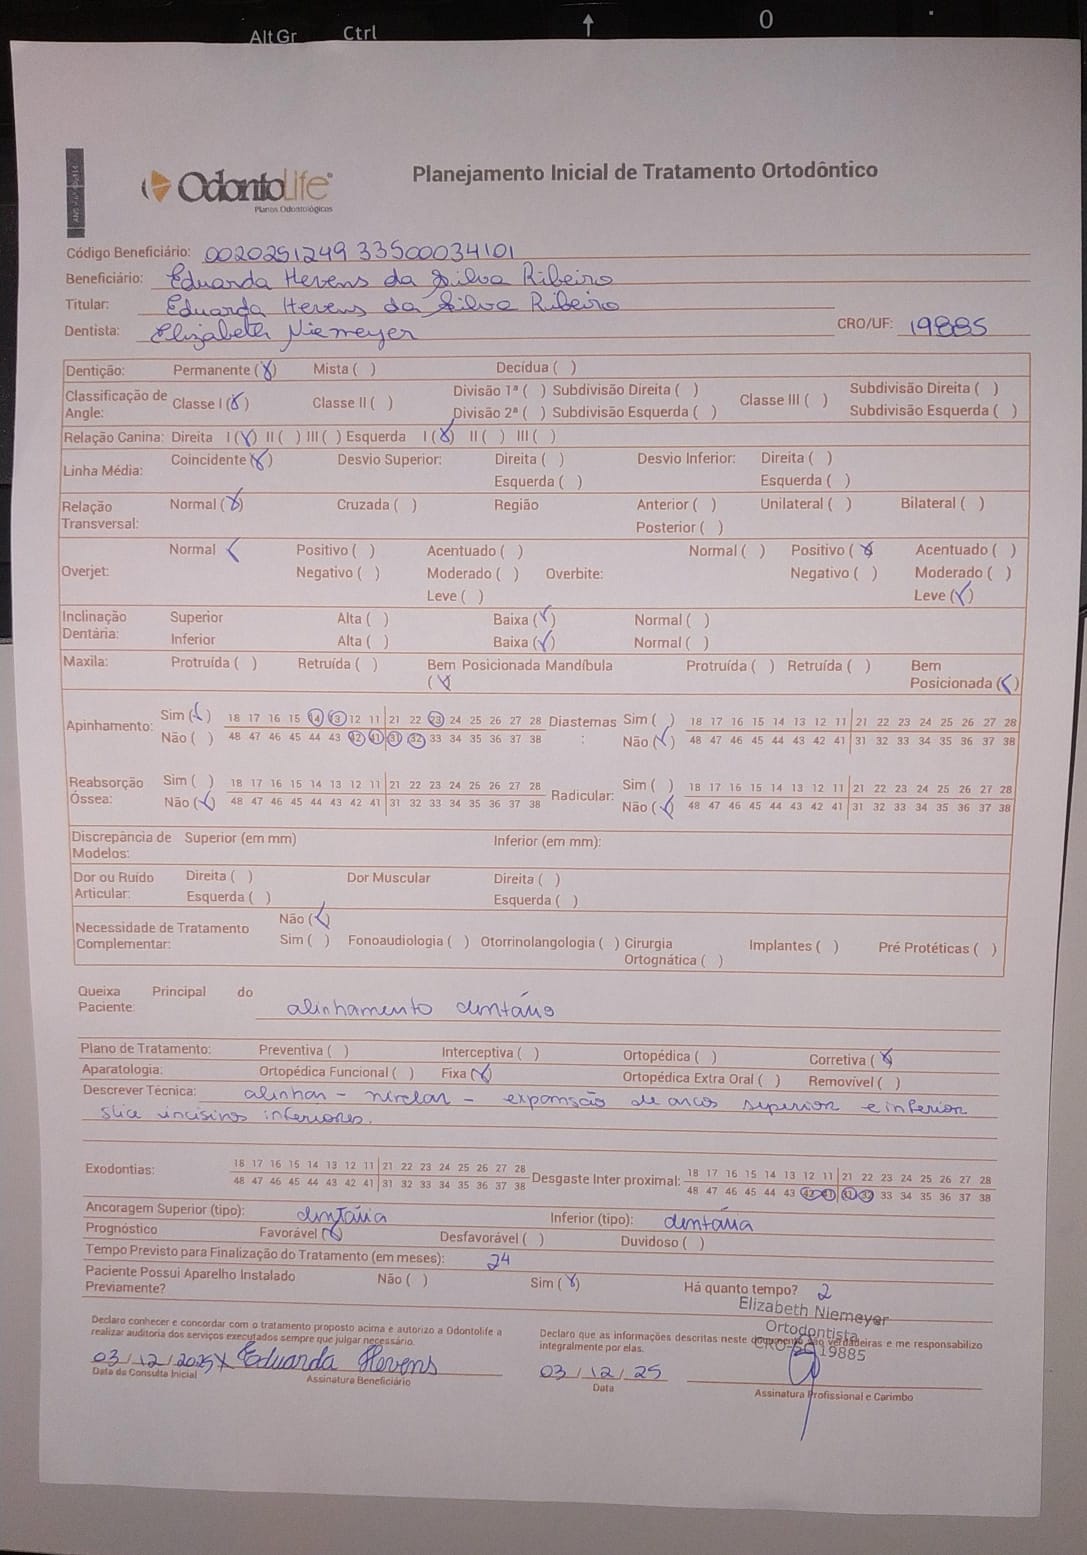 Alt Gr Ctrl ↑ 0
OdontoLife®
Planos Odontológicos
Planejamento Inicial de Tratamento Ortodôntico
Código Beneficiário: 00202512493350003 4101
Beneficiário: Eduarda Hevens da Silva Ribeiro
Titular: Eduarda Hevens da Silva Ribeiro
Dentista: Elizabeth Niemeyer CRO/UF: 19885
Dentição: Permanente (X) Mista ( ) Decídua ( )
Classificação de Angle: Classe I (X) Classe II ( ) Divisão 1ª ( ) Subdivisão Direita ( ) Divisão 2ª ( ) Subdivisão Esquerda ( ) Classe III ( ) Subdivisão Direita ( ) Subdivisão Esquerda ( )
Relação Canina: Direita I (X) II ( ) III ( ) Esquerda I (X) II ( ) III ( )
Linha Média: Coincidente (X) Desvio Superior: Direita ( ) Esquerda ( ) Desvio Inferior: Direita ( ) Esquerda ( )
Relação Transversal: Normal (X) Cruzada ( ) Região Anterior ( ) Posterior ( ) Unilateral ( ) Bilateral ( )
Overjet: Normal (X Positivo ( ) Negativo ( ) Acentuado ( ) Moderado ( ) Leve ( ) Overbite: Normal ( ) Positivo (X) Negativo ( ) Acentuado ( ) Moderado ( ) Leve (X)
Inclinação Dentária: Superior Alta ( ) Baixa (X) Normal ( )
Inferior Alta ( ) Baixa (X) Normal ( )
Maxila: Protruída ( ) Retruída ( ) Bem Posicionada (X) Mandíbula Protruída ( ) Retruída ( ) Bem Posicionada (X)
Apinhamento: Sim (X) 18 17 16 15 14 13 12 11 21 22 23 24 25 26 27 28 Diastemas : Sim ( ) 18 17 16 15 14 13 12 11 21 22 23 24 25 26 27 28
Não ( ) 48 47 46 45 44 43 42 41 31 32 33 34 35 36 37 38 Não (X) 48 47 46 45 44 43 42 41 31 32 33 34 35 36 37 38
Reabsorção Óssea: Sim ( ) 18 17 16 15 14 13 12 11 21 22 23 24 25 26 27 28 Radicular: Sim ( ) 18 17 16 15 14 13 12 11 21 22 23 24 25 26 27 28
Não (X) 48 47 46 45 44 43 42 41 31 32 33 34 35 36 37 38 Não (X) 48 47 46 45 44 43 42 41 31 32 33 34 35 36 37 38
Discrepância de Modelos: Superior (em mm) Inferior (em mm):
Dor ou Ruído Articular: Direita ( ) Esquerda ( ) Dor Muscular Direita ( ) Esquerda ( )
Necessidade de Tratamento Complementar: Não (X)
Sim ( ) Fonoaudiologia ( ) Otorrinolangologia ( ) Cirurgia Ortognática ( ) Implantes ( ) Pré Protéticas ( )
Queixa Principal do Paciente: alinhamento dentário
Plano de Tratamento: Preventiva ( ) Interceptiva ( ) Ortopédica ( ) Corretiva (X)
Aparatologia: Ortopédica Funcional ( ) Fixa (X) Ortopédica Extra Oral ( ) Removível ( )
Descrever Técnica: alinhar - nivelar - expansão de arcos superior e inferior
slice incisivos inferiores.
Exodontias: 18 17 16 15 14 13 12 11 21 22 23 24 25 26 27 28 Desgaste Inter proximal: 18 17 16 15 14 13 12 11 21 22 23 24 25 26 27 28
48 47 46 45 44 43 42 41 31 32 33 34 35 36 37 38 48 47 46 45 44 43 42 41 31 32 33 34 35 36 37 38
Ancoragem Superior (tipo): dentária Inferior (tipo): dentária
Prognóstico Favorável (X) Desfavorável ( ) Duvidoso ( )
Tempo Previsto para Finalização do Tratamento (em meses): 24
Paciente Possui Aparelho Instalado Previamente? Não ( ) Sim (X) Há quanto tempo? 2
Elizabeth Niemeyer
Ortodontista
19885
Declaro conhecer e concordar com o tratamento proposto acima e autorizo a Odontolife a
realizar auditoria dos serviços executados sempre que julgar necessário.
Declaro que as informações descritas neste documento são verdadeiras e me responsabilizo
integralmente por elas.
03/12/2025 x Eduarda Hevens 03/12/25
Data da Consulta Inicial Assinatura Beneficiário Data Assinatura Profissional e Carimbo